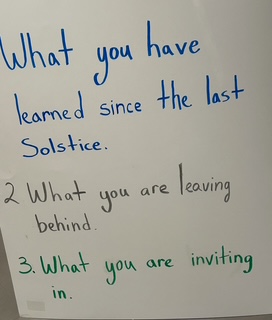 What you have
learned since the last
Solstice.
2 What you are leaving
behind.
3. What you are inviting
in.